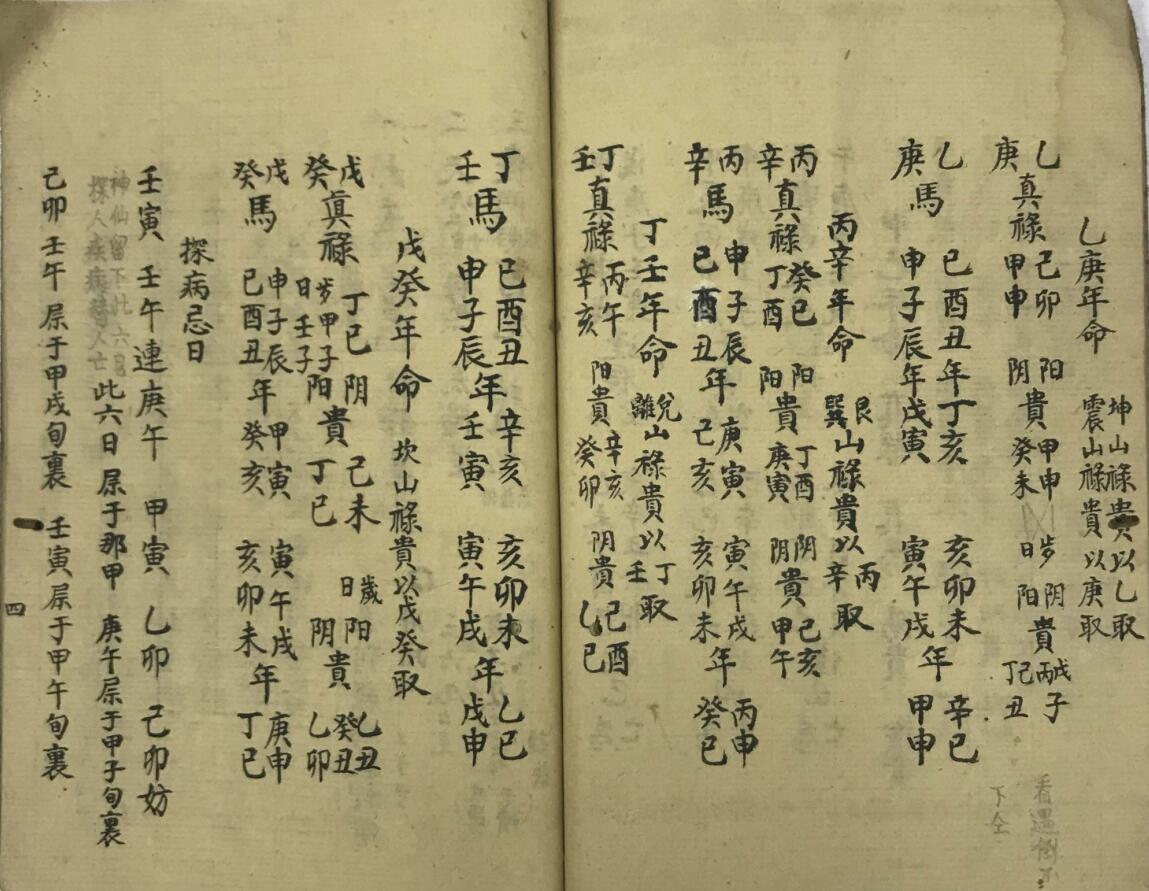 乙庚年命 坤山祿貴以乙取 震山祿貴以庚取
乙庚真祿 己卯甲申 阳阴貴 甲申癸未 歩日 阴阳貴 丙子丁丑
乙庚馬 巳酉丑申子辰年 丁亥戊寅 亥卯未寅午戌年 辛巳甲申
丙辛年命 艮巽山祿貴以丙辛取
丙辛真祿 癸巳丁酉 阳阳貴 丁酉庚寅 阴阴貴 己亥甲午
丙辛馬 申子辰巳酉丑年 庚寅己亥 寅午戌亥卯未年 丙申癸巳
丁壬年命 兌離山祿貴以丁壬取
丁壬真祿 丙午辛亥 阳貴 辛亥癸卯 阴貴 己酉乙巳
丁壬馬 巳酉丑申子辰年 辛亥壬寅 亥卯未寅午戌年 乙巳戊申
戊癸年命 坎山祿貴以戊癸取
戊癸真祿 丁巳 歩甲子日壬子 阴阳貴 己未丁巳 歲日 阳阴貴 乙丑癸丑乙卯
戊癸馬 申子辰巳酉丑年 甲寅癸亥 寅午戌亥卯未年 庚申丁巳
探病忌日
壬寅 壬午連庚午 甲寅 乙卯 己卯妨
神仙留下此六日
探人疾病替人亡
此六日 屌于那甲 庚午屌于甲子旬裏
己卯壬午屌于甲戌旬裏 壬寅屌于甲午旬裏
四